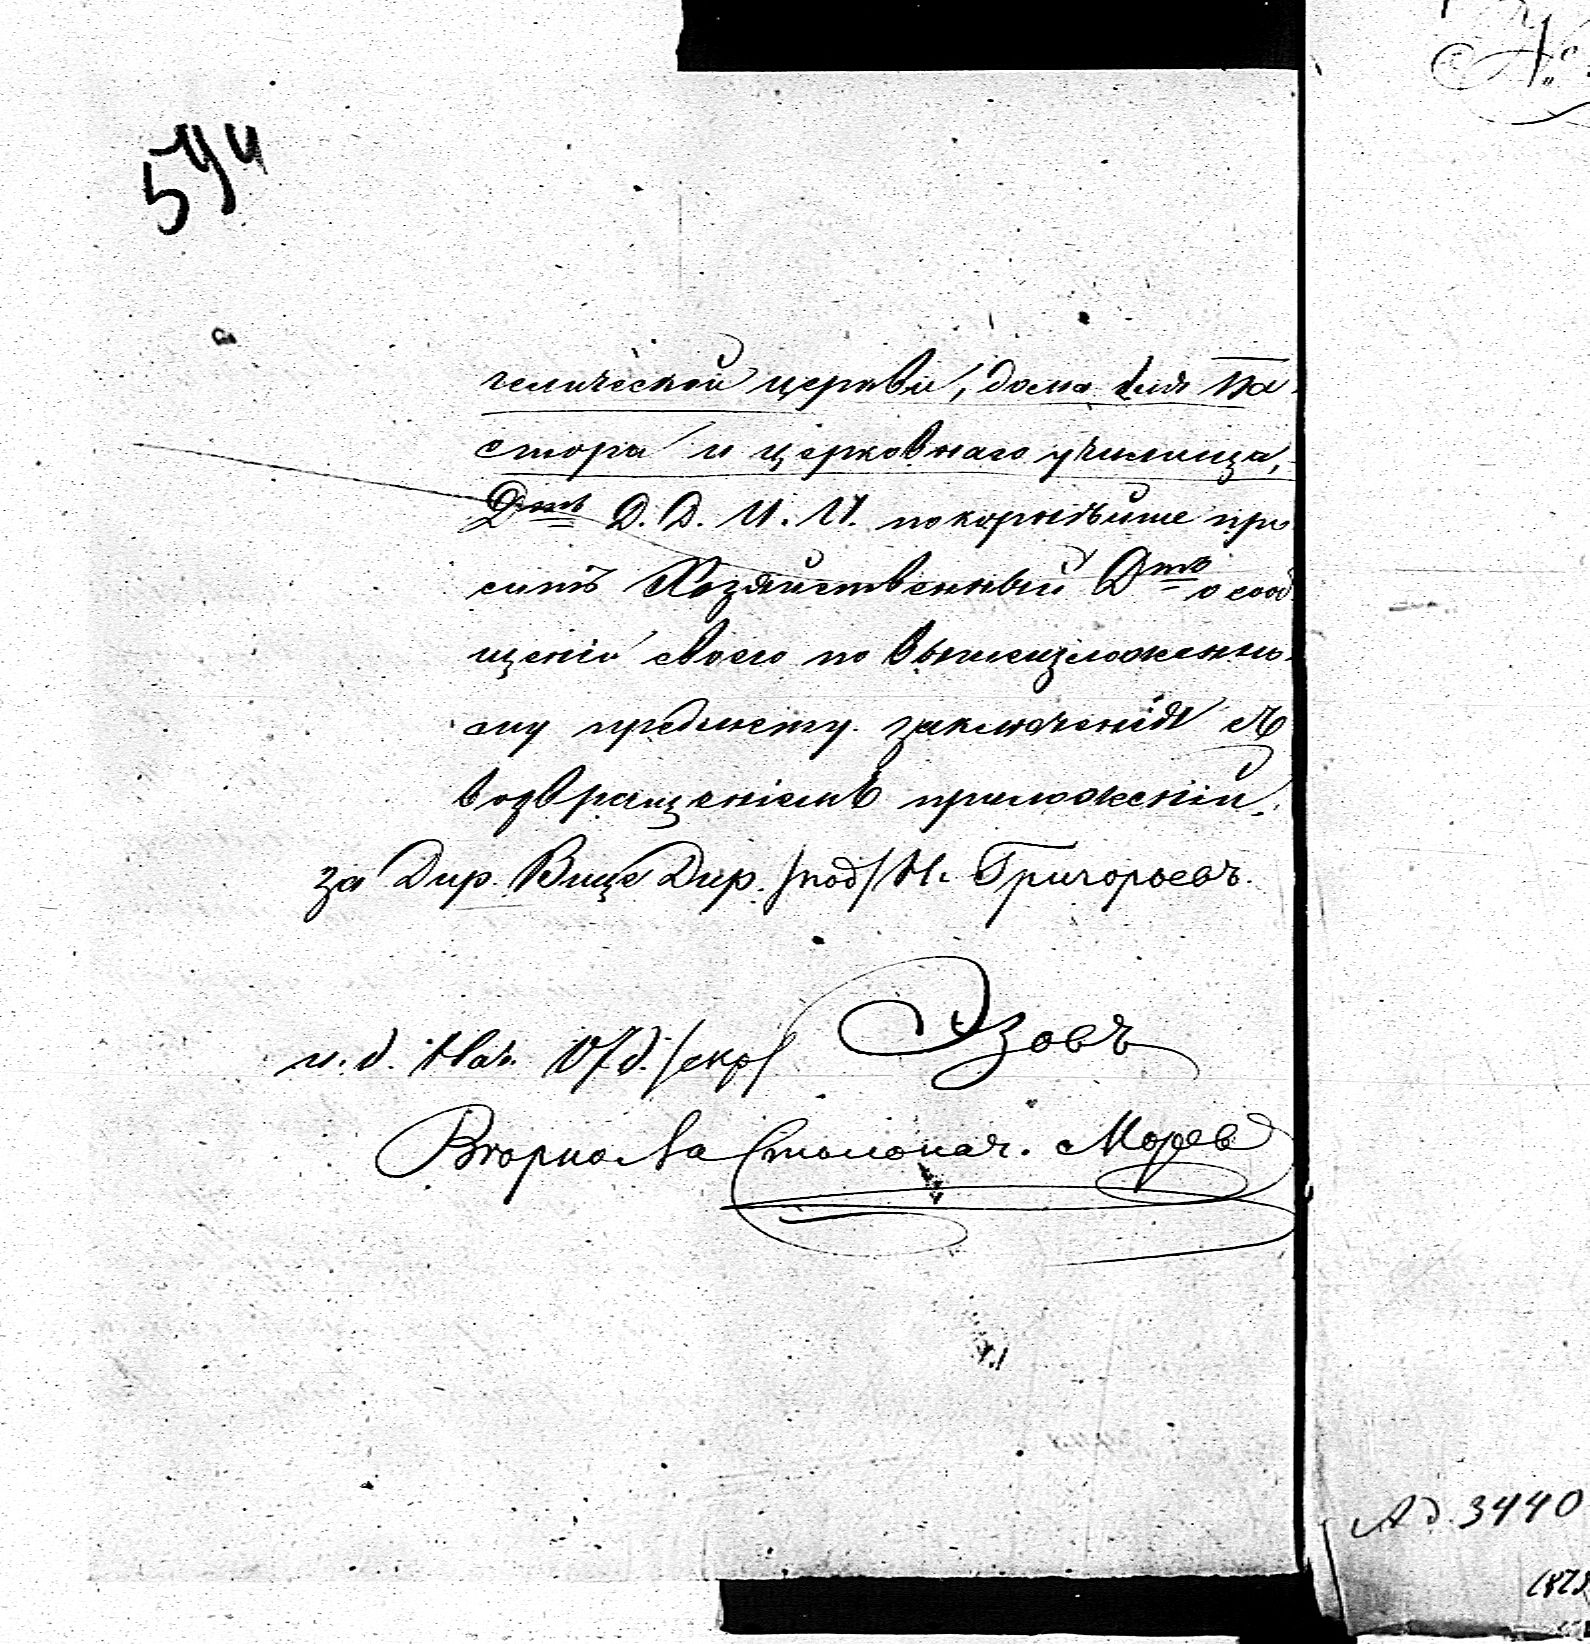 594
гелической церкви, дома для па-
стора и церковнаго училища,
Д<sup>тъ</sup> Д. Д. И. И. покорнѣйше про-
ситъ Хозяйственный Д<sup>тъ</sup> о сооб-
щеніи своего по вышеизложенно-
му предмету заключенія съ
возвращеніемъ приложеній.
за Дир. Вице Дир. /под/ Н. Григорьевъ.
и. д. Нач. Отд. /скр/ Эзовъ
Вторно за Столонач. Моревъ
Ад. 3440